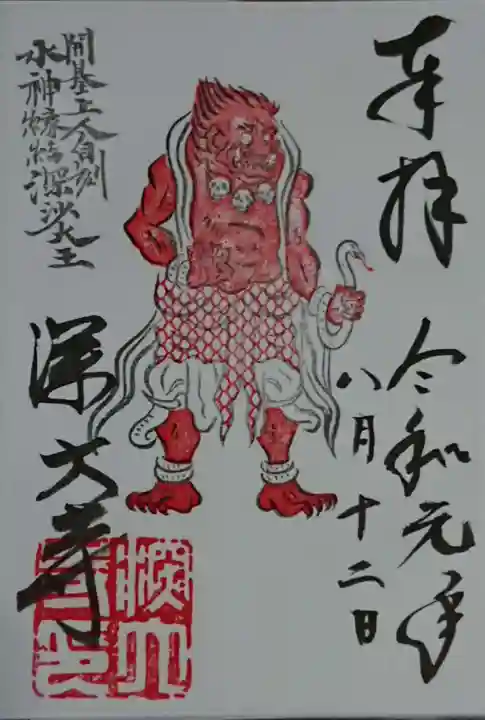 奉拝
令和元年
八月十二日
開基上人自刻
水神
深沙大王
深大寺